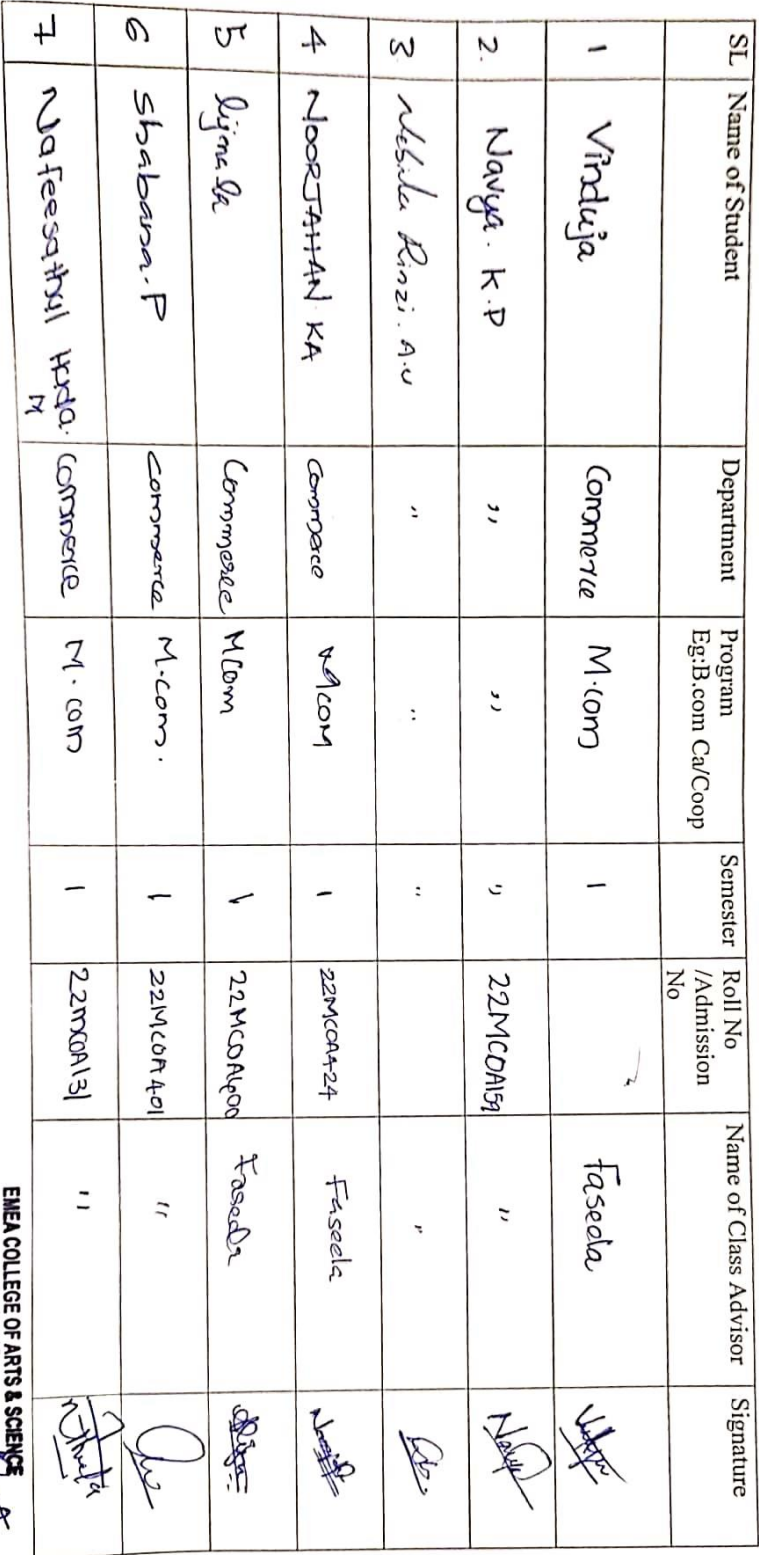 SL Name of Student Department Program Eg:B.com Ca/Coop Semester Roll No /Admission No Name of Class Advisor Signature
1 Vinduja Commerce M.com 1 Faseela
2. Navya. K.P ,, ,, ,, 22MCOA159 ,, Navya
3 Rinzi. A.U " " " "
4 NOORJAHAN KA Commerce MCOM 1 22MCOA424 Faseela
5 Commerce MCom 1 22MCOA400 Faseela
6 Shabana.P Commerce M.com. 1 22MCOA401 "
7 Nafeesathul Huda. M Commerce M.com 1 22MCOA131 "
EMEA COLLEGE OF ARTS & SCIENCE